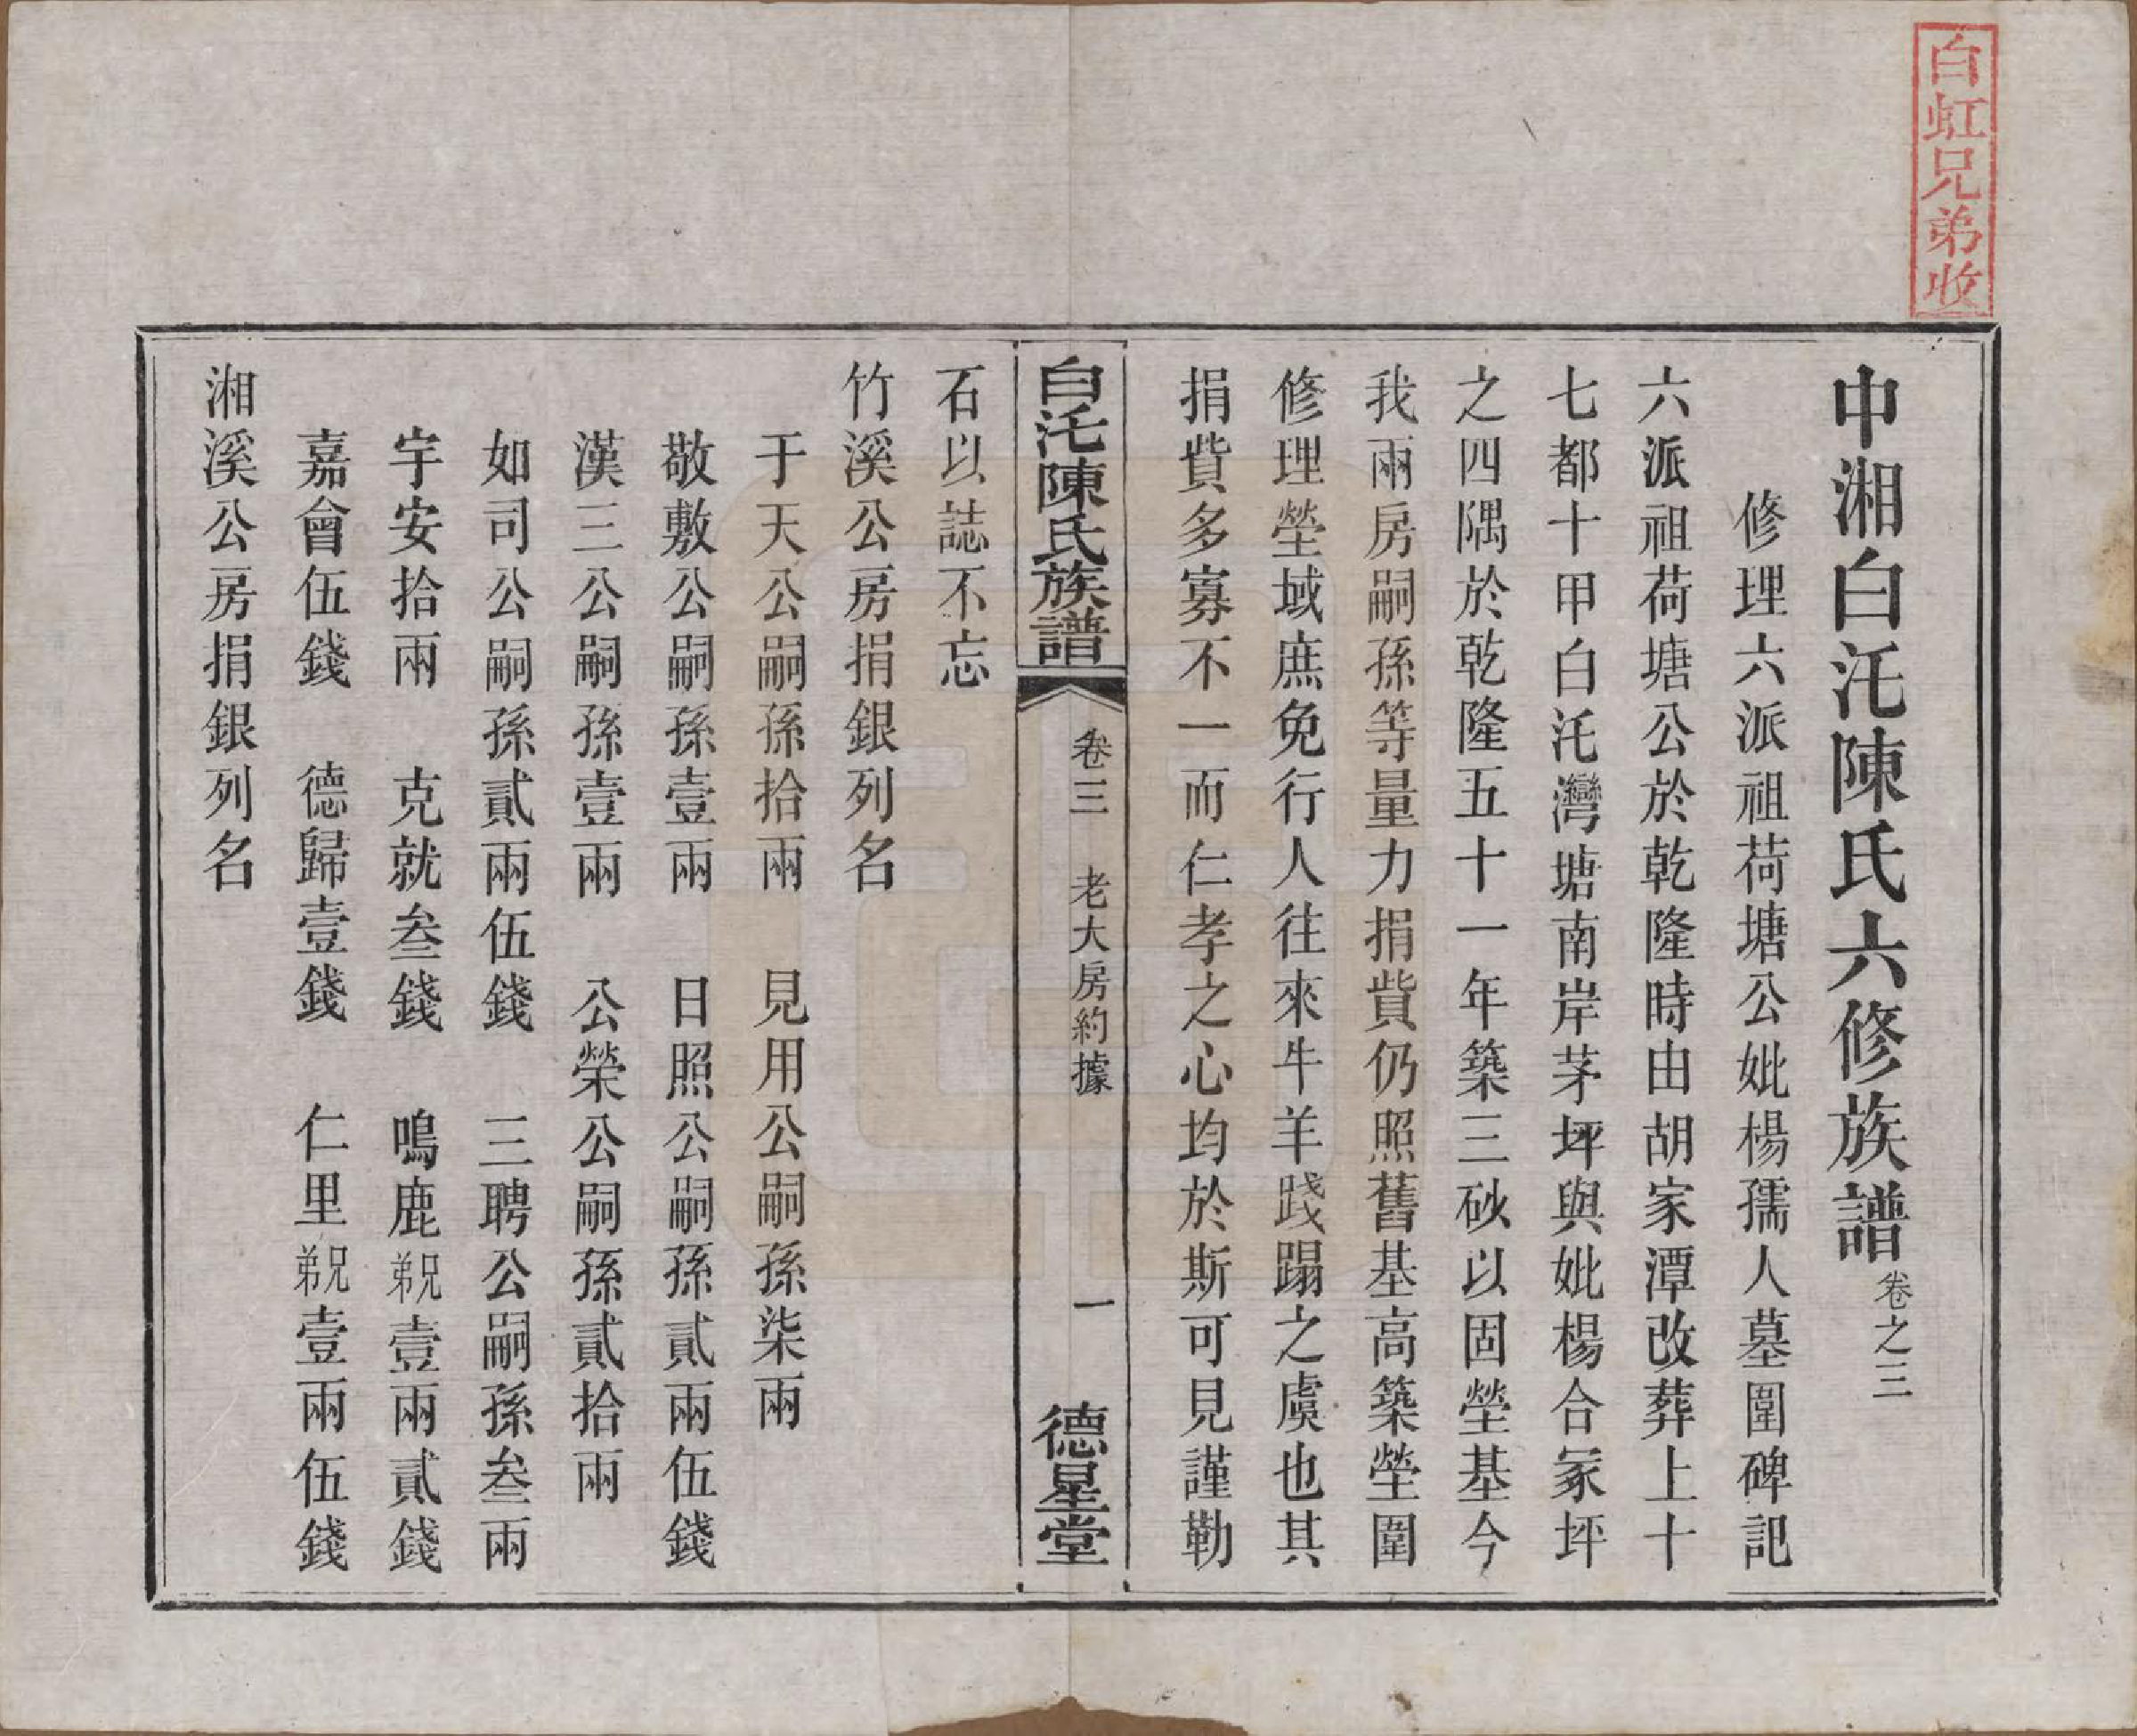 白虹兄弟收
中湘白汑陳氏六修族譜卷之三
修理六派祖荷塘公妣楊孺人墓圍碑記
六派祖荷塘公於乾隆時由胡家潭改葬上十
七都十甲白汑灣塘南岸茅坪與妣楊合冢坪
之四隅於乾隆五十一年築三砂以固塋基今
我兩房嗣孫等量力捐貲仍照舊基高築塋圍
修理塋域庶免行人往來牛羊踐蹋之虞也其
捐貲多寡不一而仁孝之心均於斯可見謹勒
白汑陳氏族譜 卷三 老大房約據 一 德星堂
石以誌不忘
竹溪公房捐銀列名
于天公嗣孫拾兩 見用公嗣孫柒兩
敬敷公嗣孫壹兩 日照公嗣孫貳兩伍錢
漢三公嗣孫壹兩 公榮公嗣孫貳拾兩
如司公嗣孫貳兩伍錢 三聘公嗣孫叁兩
宇安拾兩 克就叁錢 鳴鹿兄弟壹兩貳錢
嘉會伍錢 德歸壹錢 仁里兄弟壹兩伍錢
湘溪公房捐銀列名